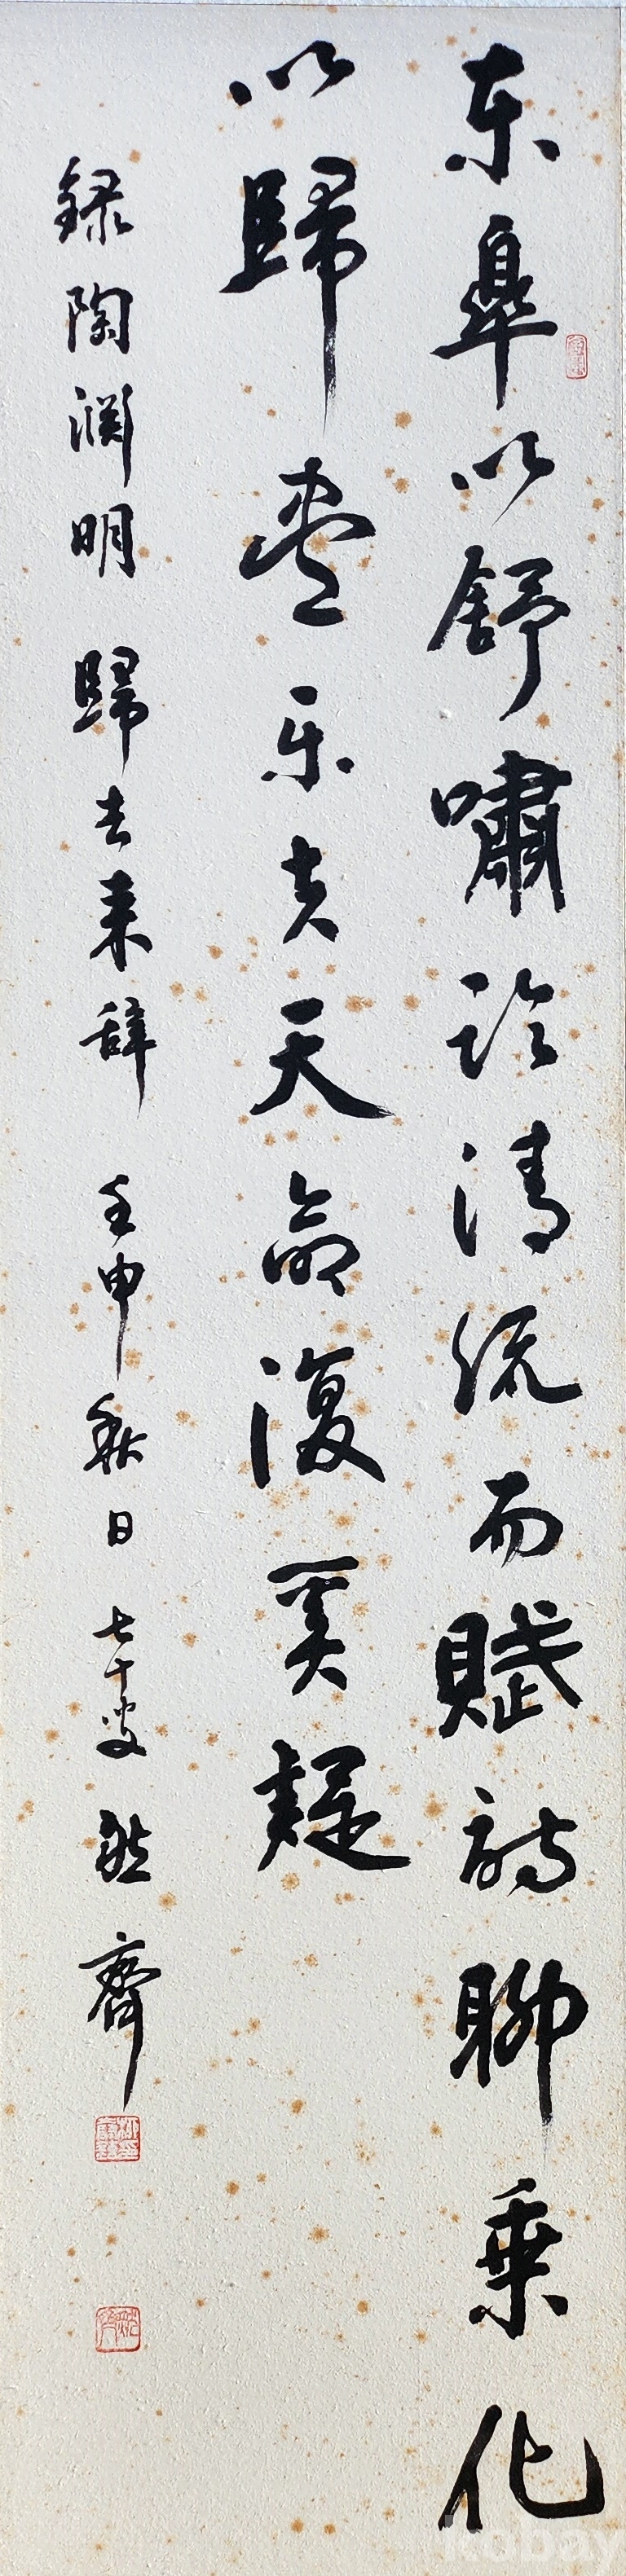 東皐以舒嘯臨清流而賦詩聊乘化
以歸盡樂夫天命復奚疑
錄陶淵明 歸去來辭 壬申秋日 七十叟 然齋
kobay